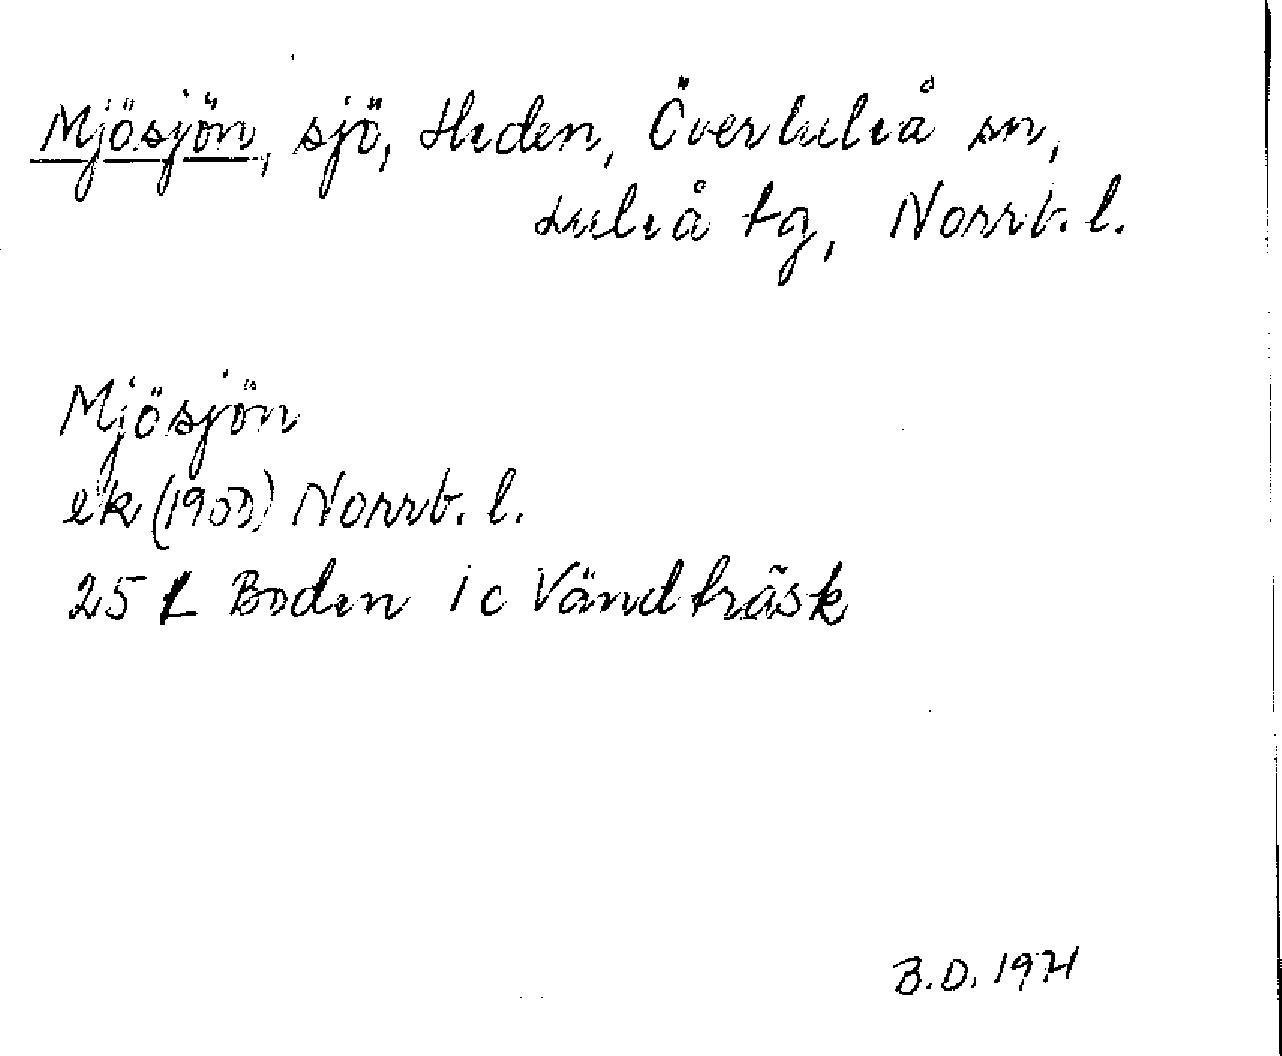 Mjösjön, sjö, Heden, Överluleå sn,
Luleå tg, Norrb. l.
Mjösjön
ek (1903) Norrb. l.
25 L Boden i c Vändträsk
B.D. 1971